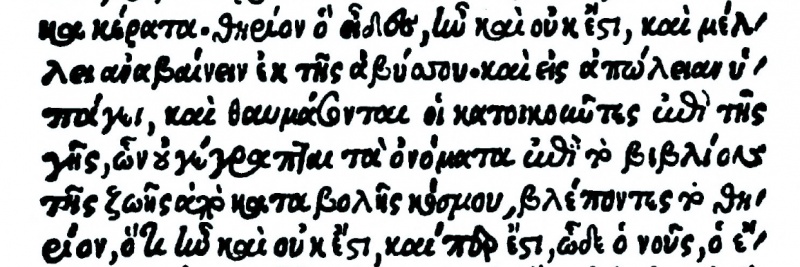 κα κέρατα. θηρίον ὃ εἶδες, ἦν καὶ οὐκ ἔστι, καὶ μέλ/
λει ἀναβαίνειν ἐκ τῆς ἀβύσσου. καὶ εἰς ἀπώλειαν ὑ/
πάγει, καὶ θαυμάσονται οἱ κατοικοῦντες ἐπὶ τῆς
γῆς, ὧν οὐ γέγραπται τὰ ὀνόματα ἐπὶ τὸ βιβλίον
τῆς ζωῆς ἀπὸ καταβολῆς κόσμου, βλέποντες τὸ θη/
ρίον, ὅτι ἦν καὶ οὐκ ἔστι, καίπερ ἔστι, ὧδε ὁ νοῦς, ὁ ἔ/